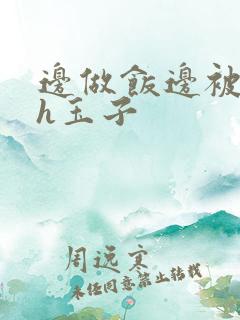 邊做飯邊被
h玉子
周远寒
未经同意禁止转载